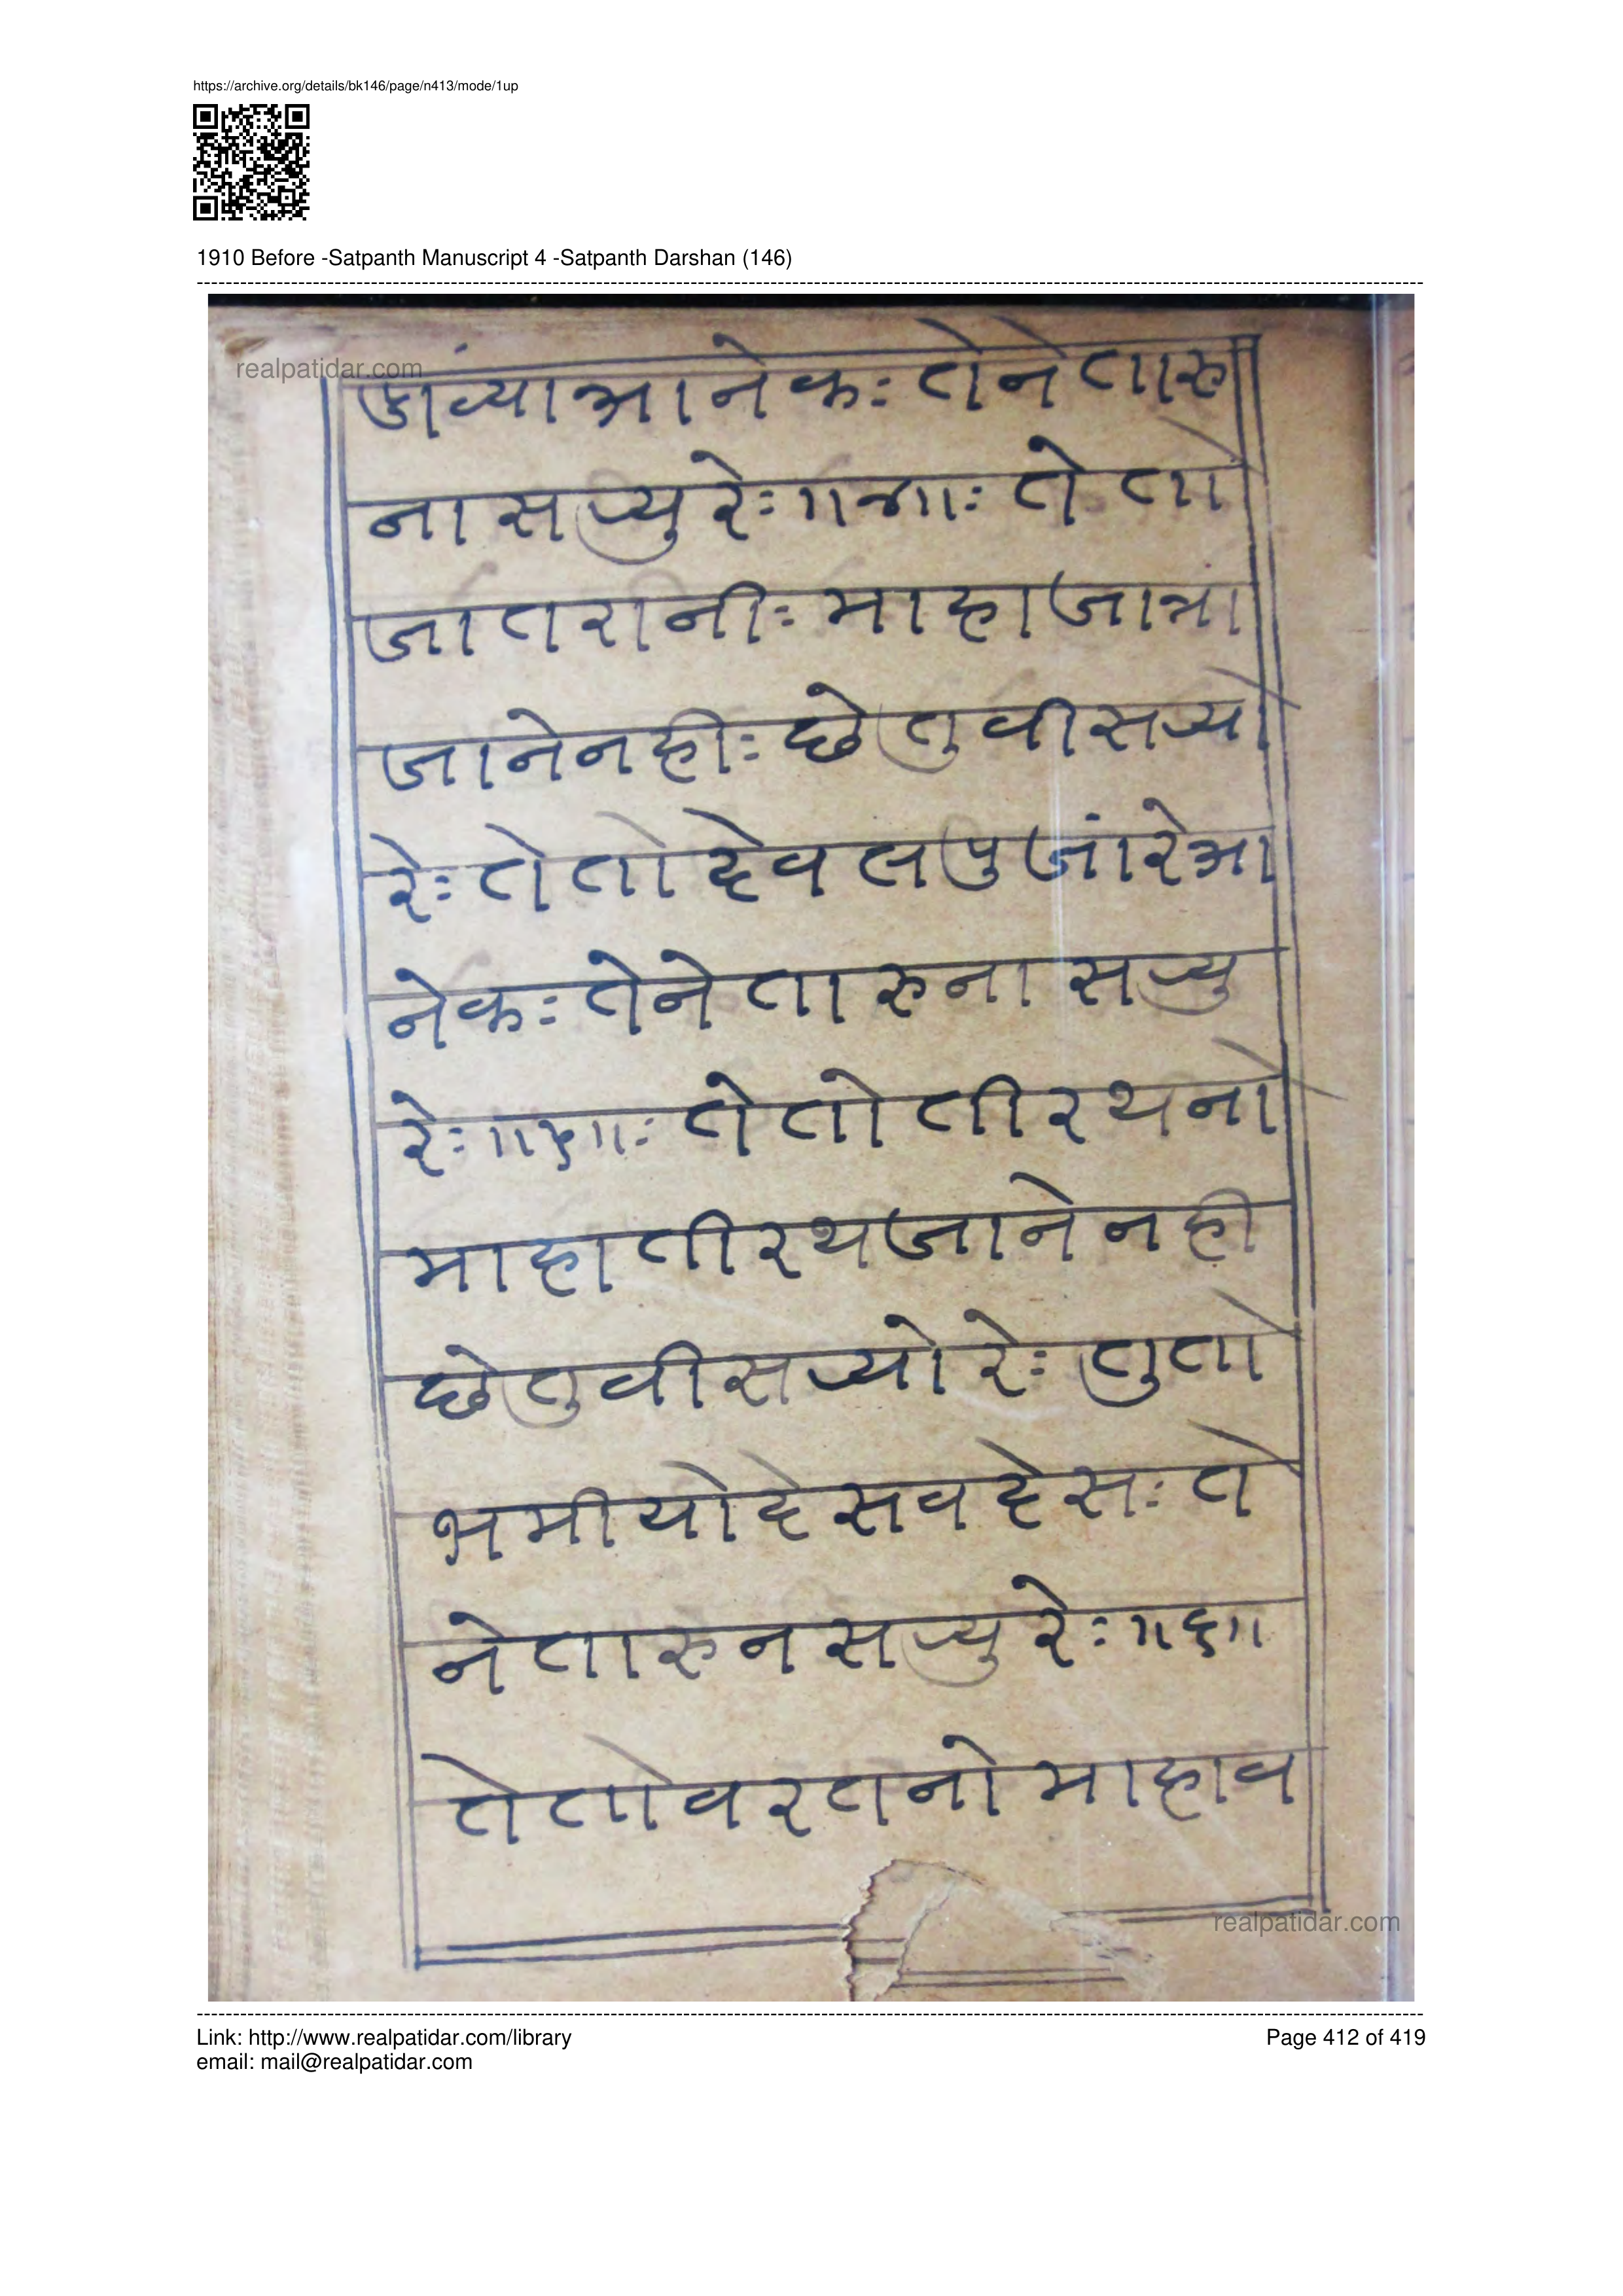 https://archive.org/details/bk146/page/n413/mode/1up
1910 Before -Satpanth Manuscript 4 -Satpanth Darshan (146)
realpatidar.com
पुंज्या अानेकः तेने तारु
ना सर्‍यु रेः ॥४॥ः ते तो
जातरानीः माहा जात्रां
जाने नहीः छे तु वीसर्‍यो
रेः ते तो देवल पुजांरे अा
नेकः तेने तारु ना सर्‍यु
रेः ॥५॥ः ते तो तीरथनो
माहा तीरथ जाने नही
छे तु वीसर्‍यो रेः तु तो
भमीयो देसवदेसः ते
ने तारु न सर्‍यु रेः ॥६॥
ते तो वरतनो माहा व
realpatidar.com
Link: http://www.realpatidar.com/library
email: mail@realpatidar.com
Page 412 of 419